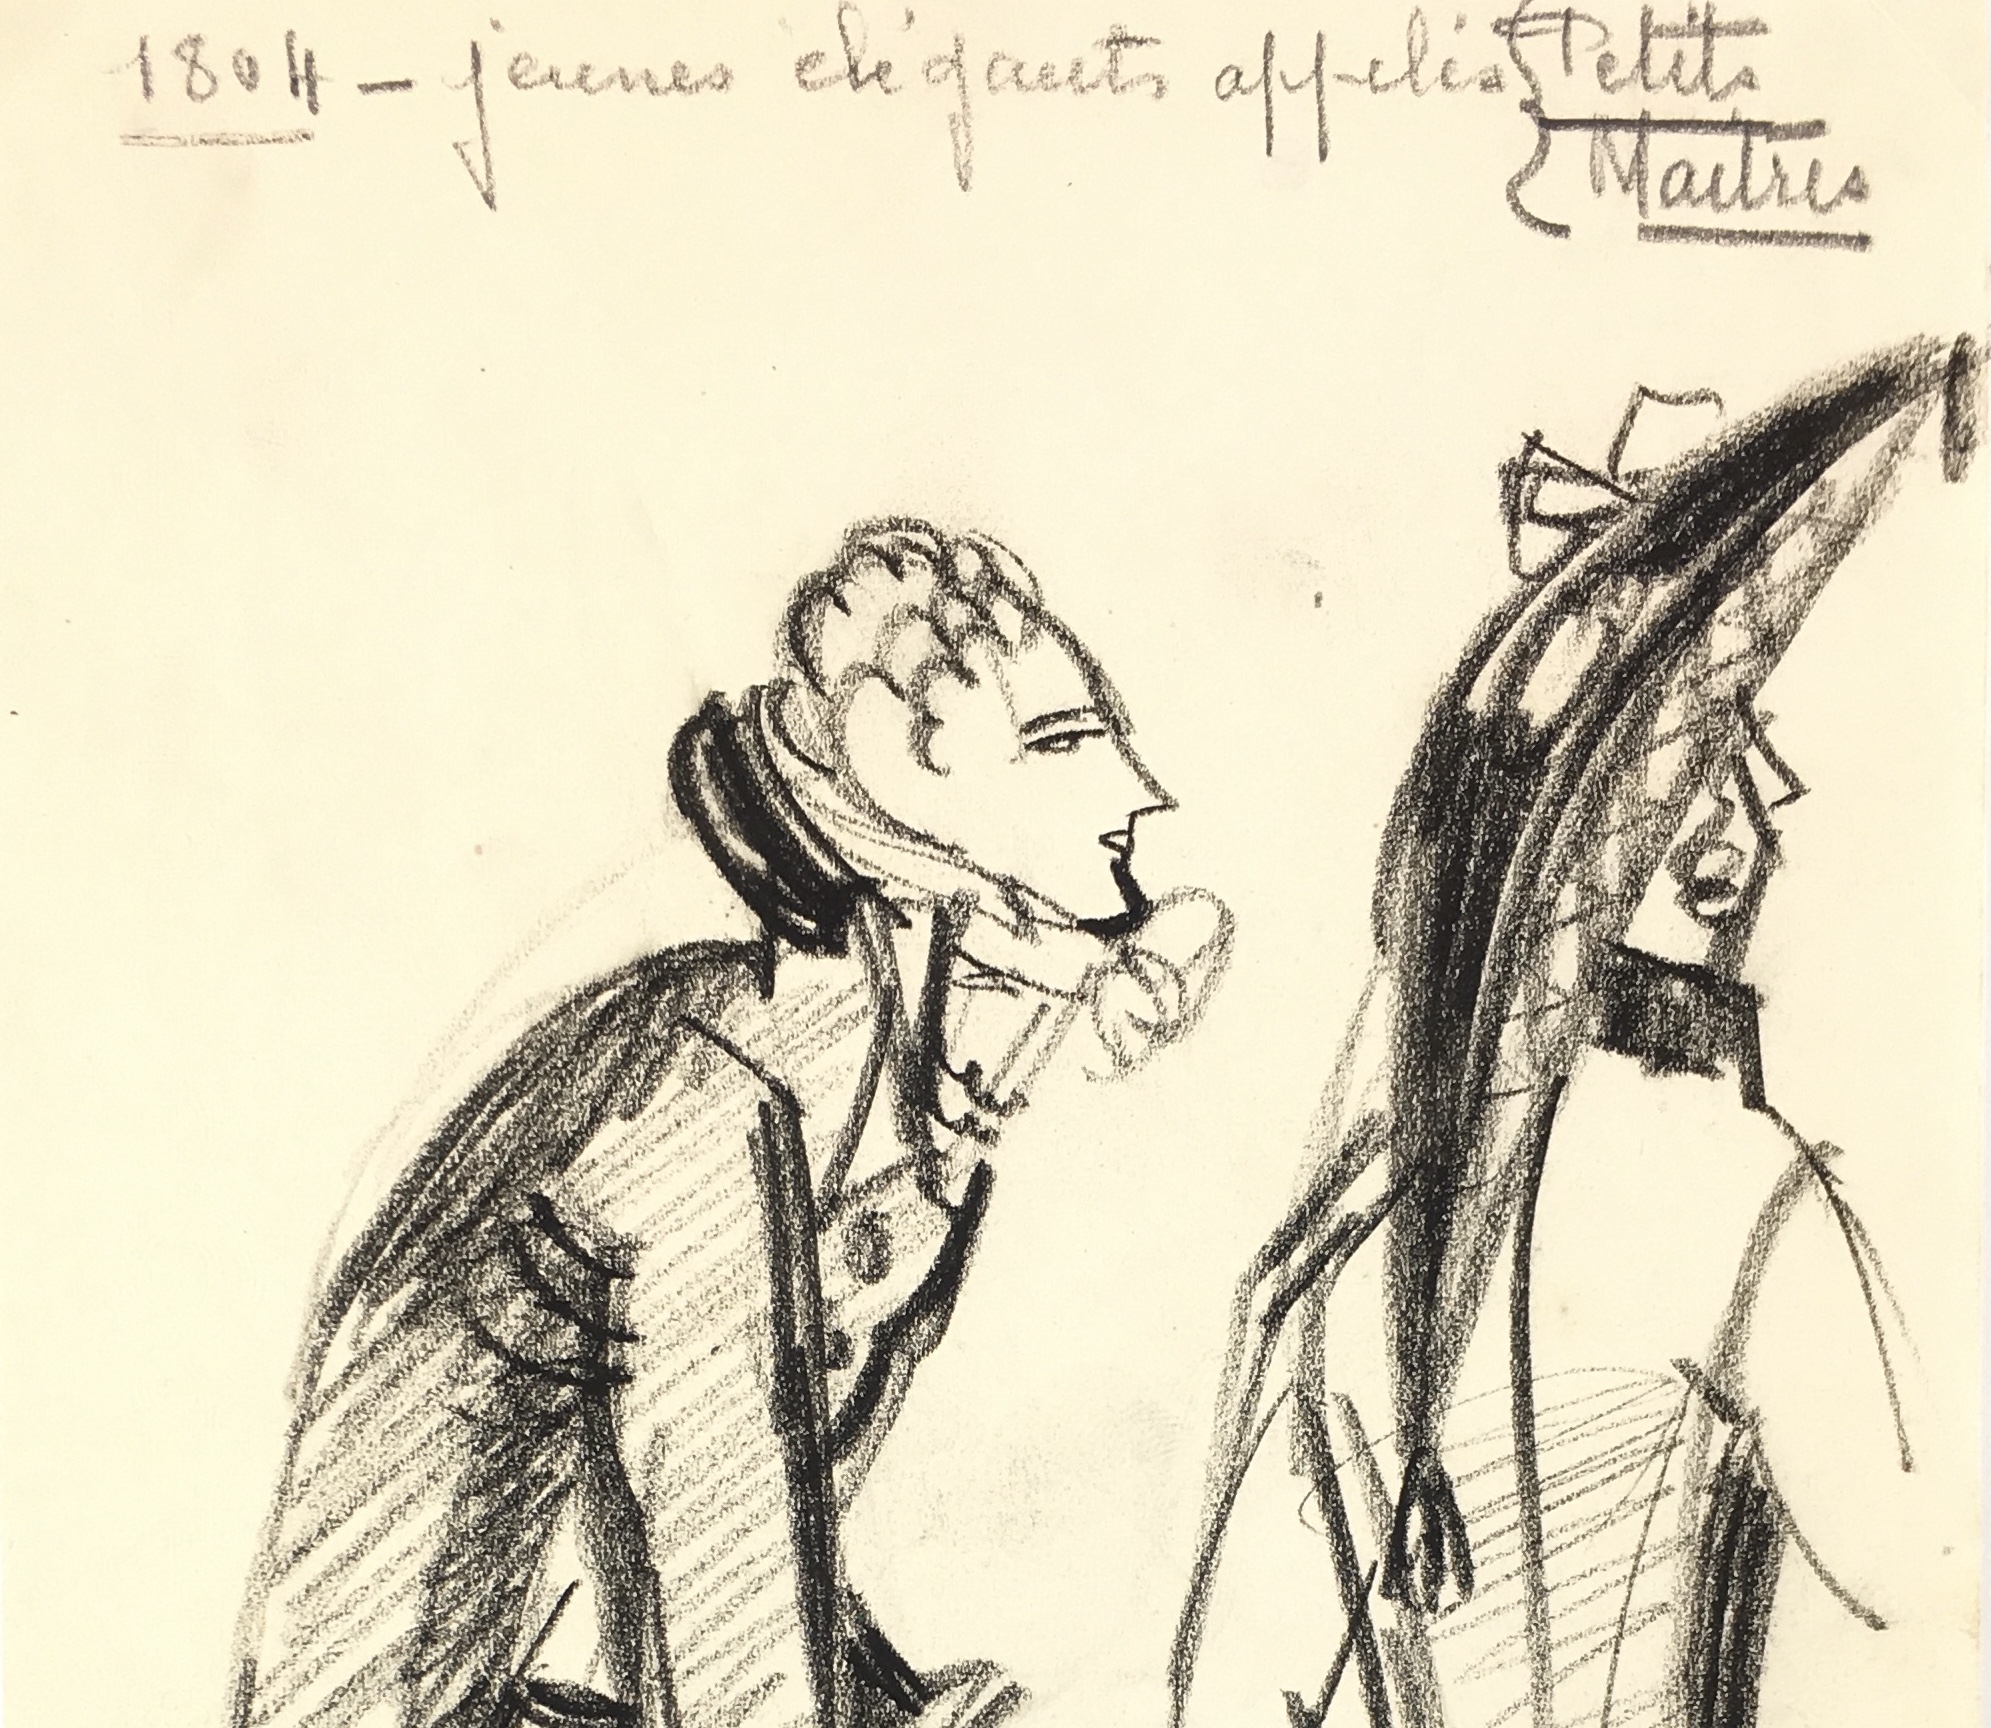 1804 - jeunes élégants appelés { Petits
Maitres